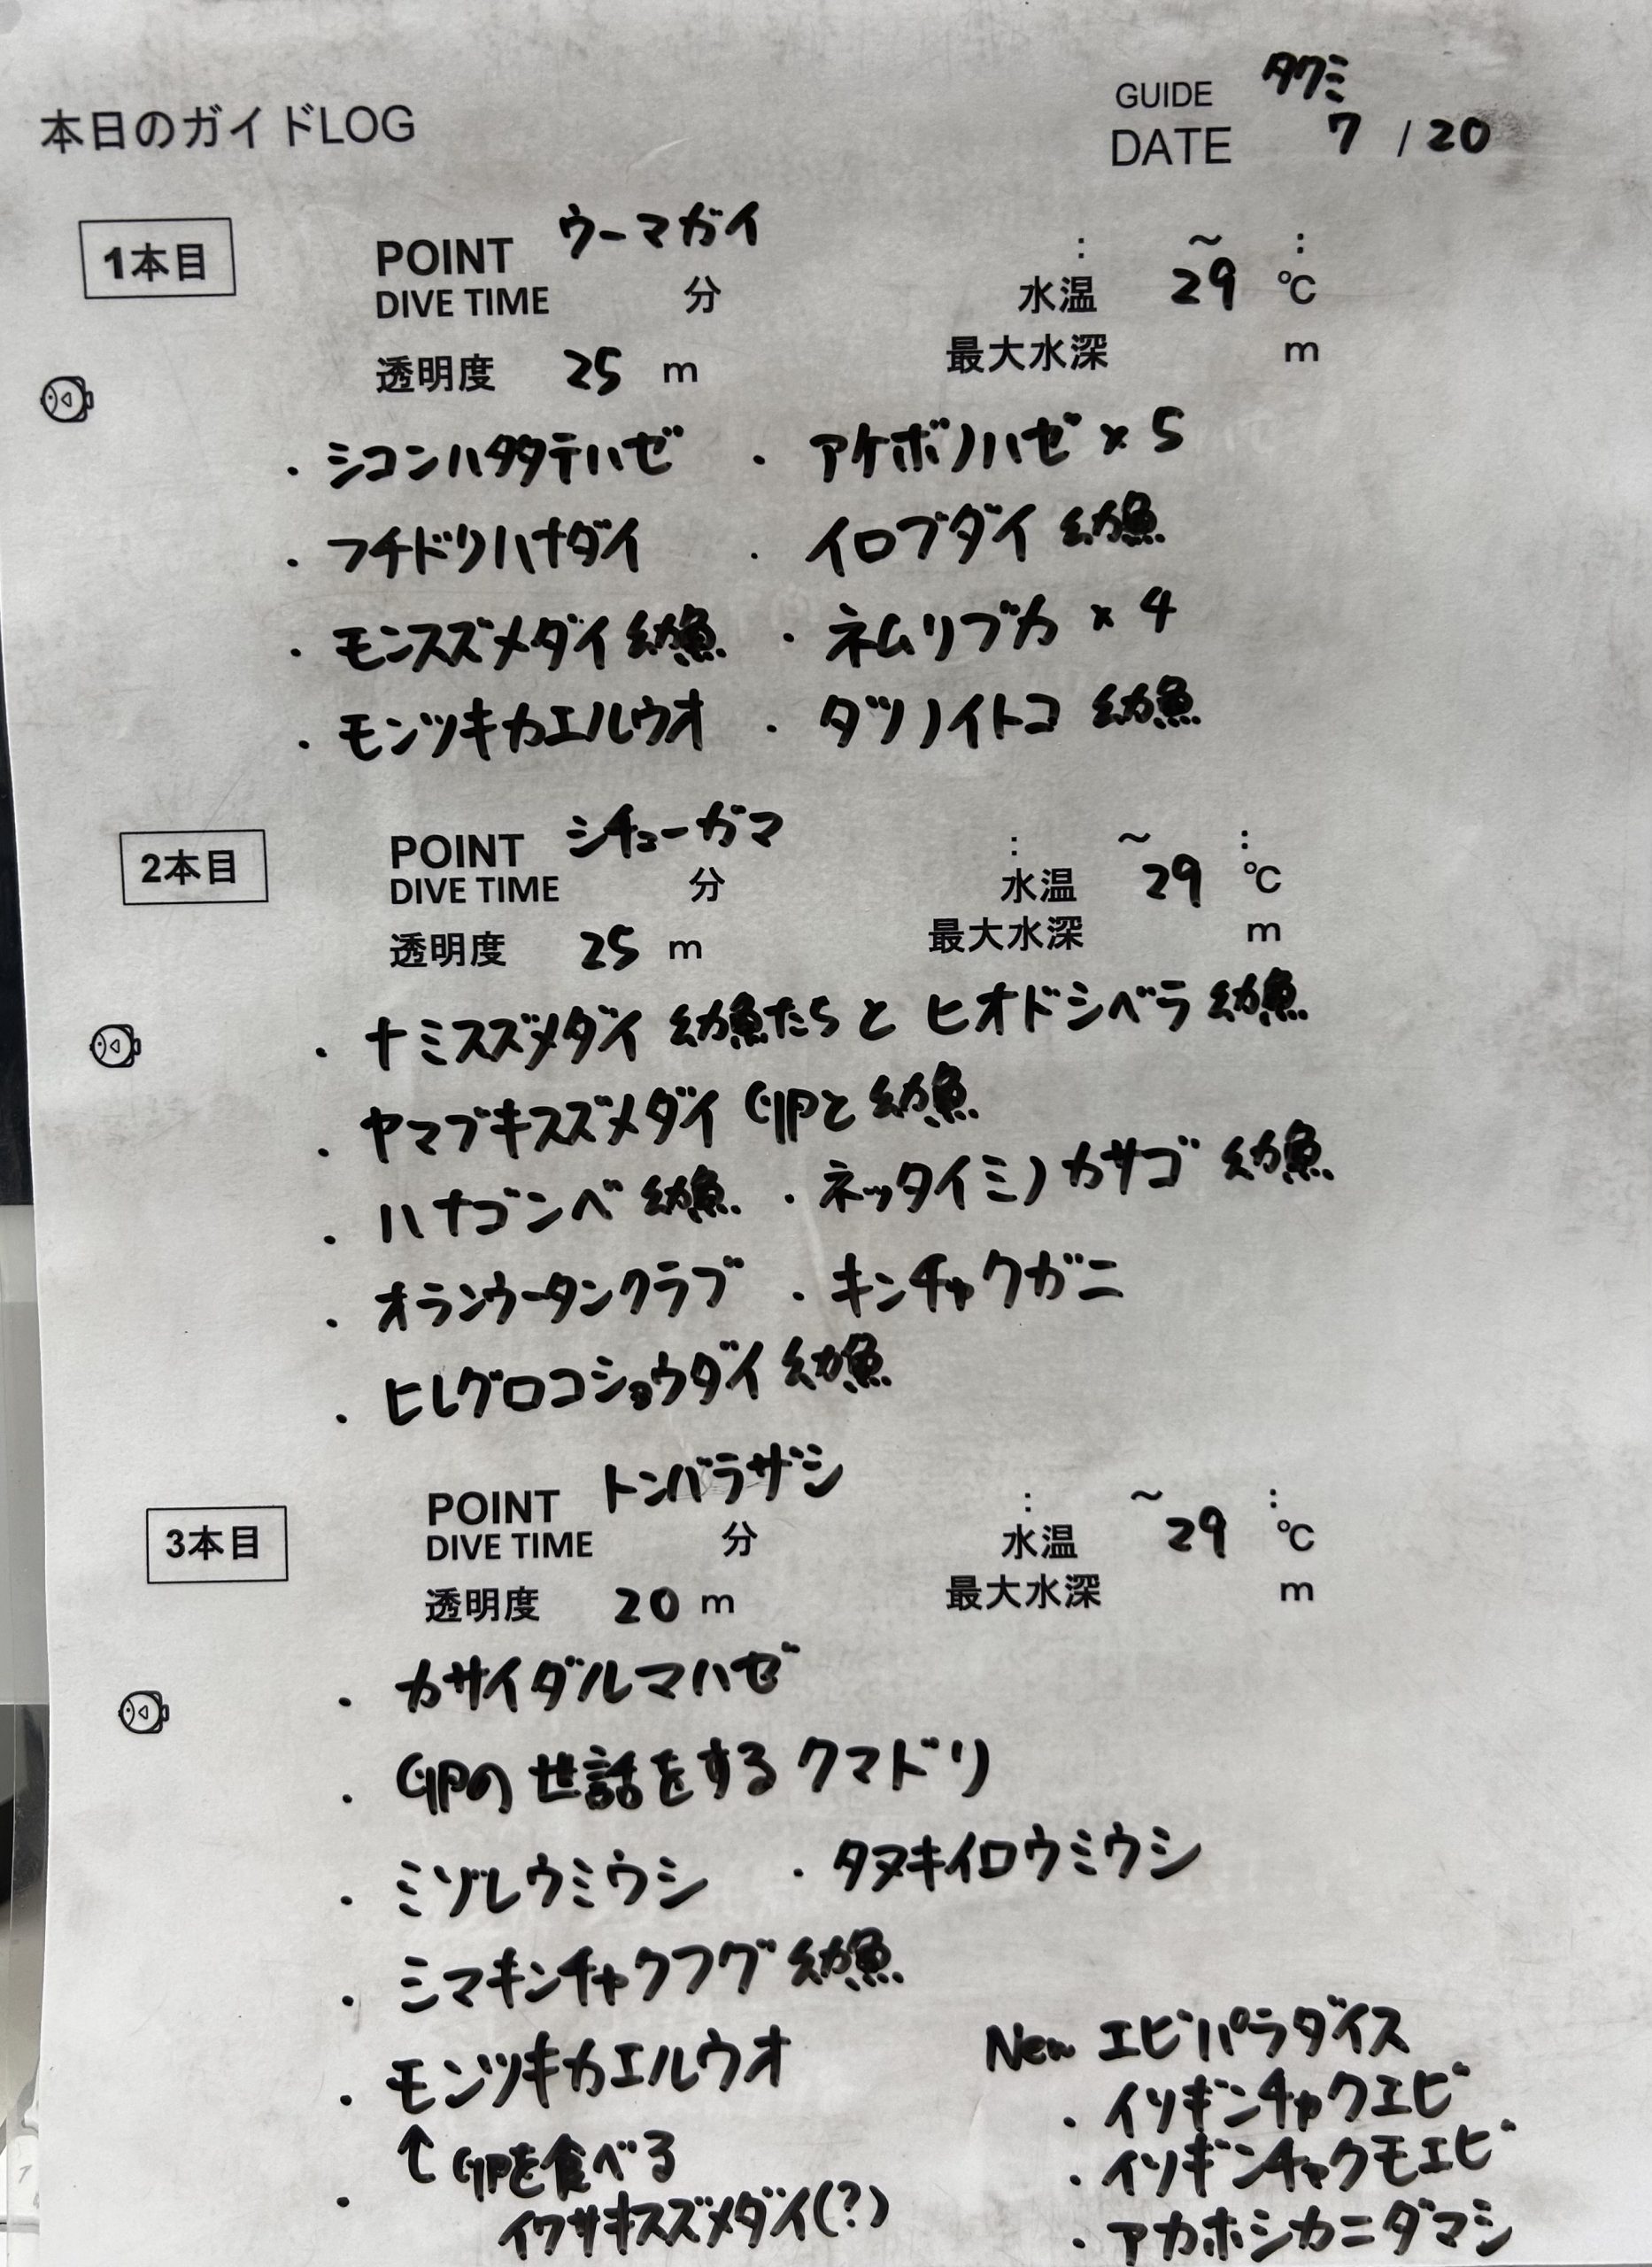 本日のガイドLOG
GUIDE タクミ
DATE 7 / 20
1本目
POINT ウーマガイ : ～ :
DIVE TIME 分 水温 29 ℃
透明度 25 m 最大水深 m
・シコンハタタテハゼ ・アケボノハゼ×5
・フチドリハナダイ ・イロブダイ 幼魚
・モンスズメダイ 幼魚 ・ネムリブカ ×4
・モンツキカエルウオ ・ダツノイトコ 幼魚
2本目
POINT シチューガマ : ～ :
DIVE TIME 分 水温 29 ℃
透明度 25 m 最大水深 m
・ナミスズメダイ 幼魚たちと ヒオドシベラ 幼魚
・ヤマブキスズメダイ 卵と 幼魚
・ハナゴンベ 幼魚 ・ネッタイミノカサゴ 幼魚
・オランウータンクラブ ・キンチャクガニ
・ヒレグロコショウダイ 幼魚
3本目
POINT トンバラザシ : ～ :
DIVE TIME 分 水温 29 ℃
透明度 20 m 最大水深 m
・カサイダルマハゼ
・卵の世話をする クマドリ
・ミゾレウミウシ ・タヌキイロウミウシ
・シマキンチャクフグ 幼魚
・モンツキカエルウオ
↑卵を食べる
・イワサキスズメダイ(?)
New エビパラダイス
・イソギンチャクエビ
・イソギンチャクモエビ
・アカホシカニダマシ